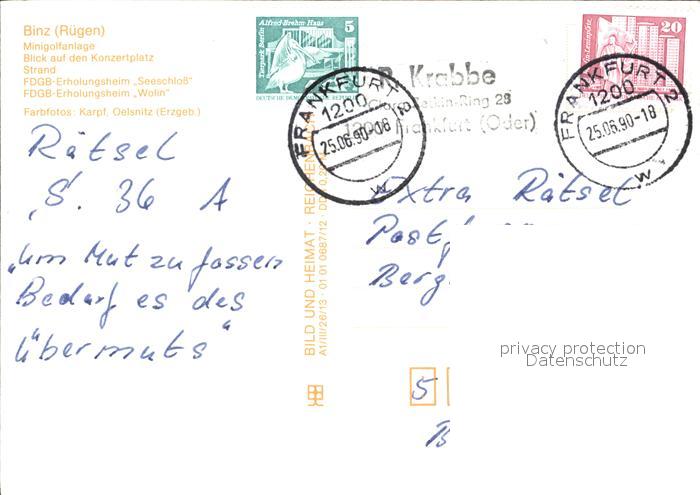 Binz (Rügen)
Minigolfanlage
Blick auf den Konzertplatz
Strand
FDGB-Erholungsheim „Seeschloß"
FDGB-Erholungsheim „Wolin"
Farbfotos: Karpf, Oelsnitz (Erzgeb.)
Rätsel
S. 36 A
„Um Mut zu fassen
Bedarf es des
Übermuts"
BILD UND HEIMAT · REICHENBACH
A1/III/26/13 · 01 01 0687/12 · DDR
Tierpark Berlin
Alfred-Brehm-Haus
5
20
FRANKFURT 2
1200
25.06.90-08
w
FRANKFURT 2
1200
25.06.90-18
w
Krabbe
-Ring 28
Frankfurt (Oder)
Extra Rätsel
Post
Berg
5
B
privacy protection
Datenschutz